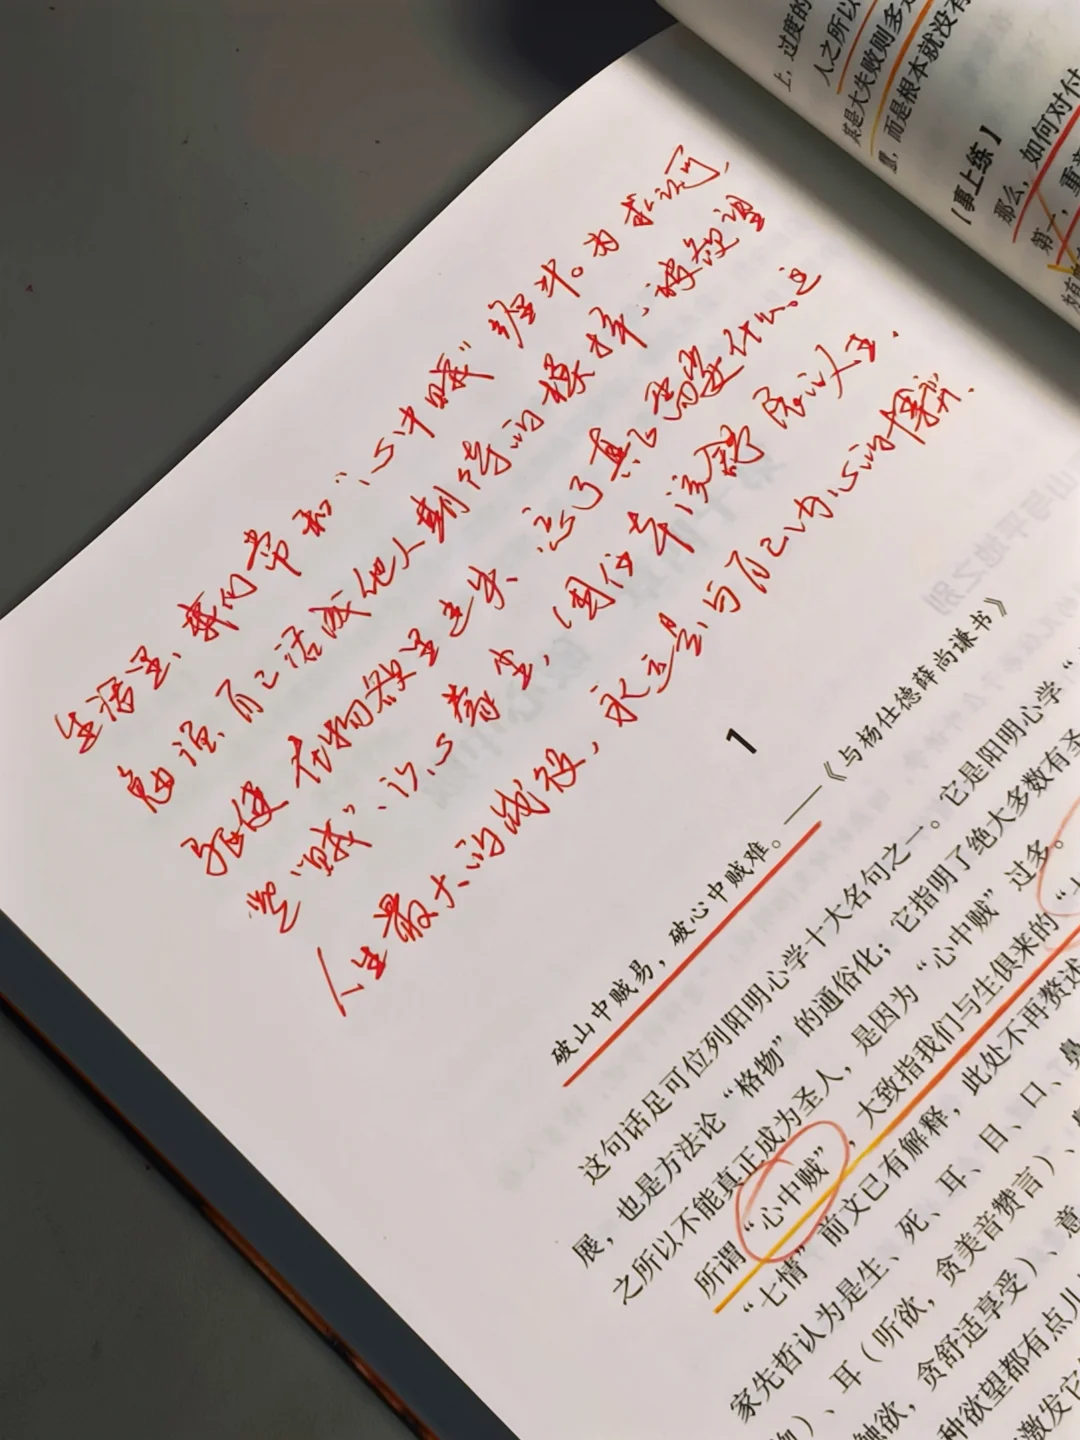 上，过度的
人之所以
其是大失败则多
，而是根本就没有
【事上练】
那么，如何对付
第一，重
生活里、我们常和“心中贼”缠斗。为求认可、
勉强自己活成他人期待的模样、被欲望
驱使在物欲里迷失、忘了真正需要什么。这
些“贼”、让心蒙尘，困住本该舒展的人生.
人生最大的战役，永远是与自己内心的博弈.
1
破山中贼易，破心中贼难。——《与杨仕德薛尚谦书》
这句话足可位列阳明心学十大名句之一。它是阳明心学“
展，也是方法论“格物”的通俗化；它指明了绝大多数有圣
之所以不能真正成为圣人，是因为“心中贼”过多。
所谓“心中贼”，大致指我们与生俱来的“七
“七情”前文已有解释，此处不再赘述
家先哲认为是生、死、耳、目、口、鼻
）、耳（听欲，贪美音赞言）、
触欲，贪舒适享受）、意
种欲望都有点儿
激发它